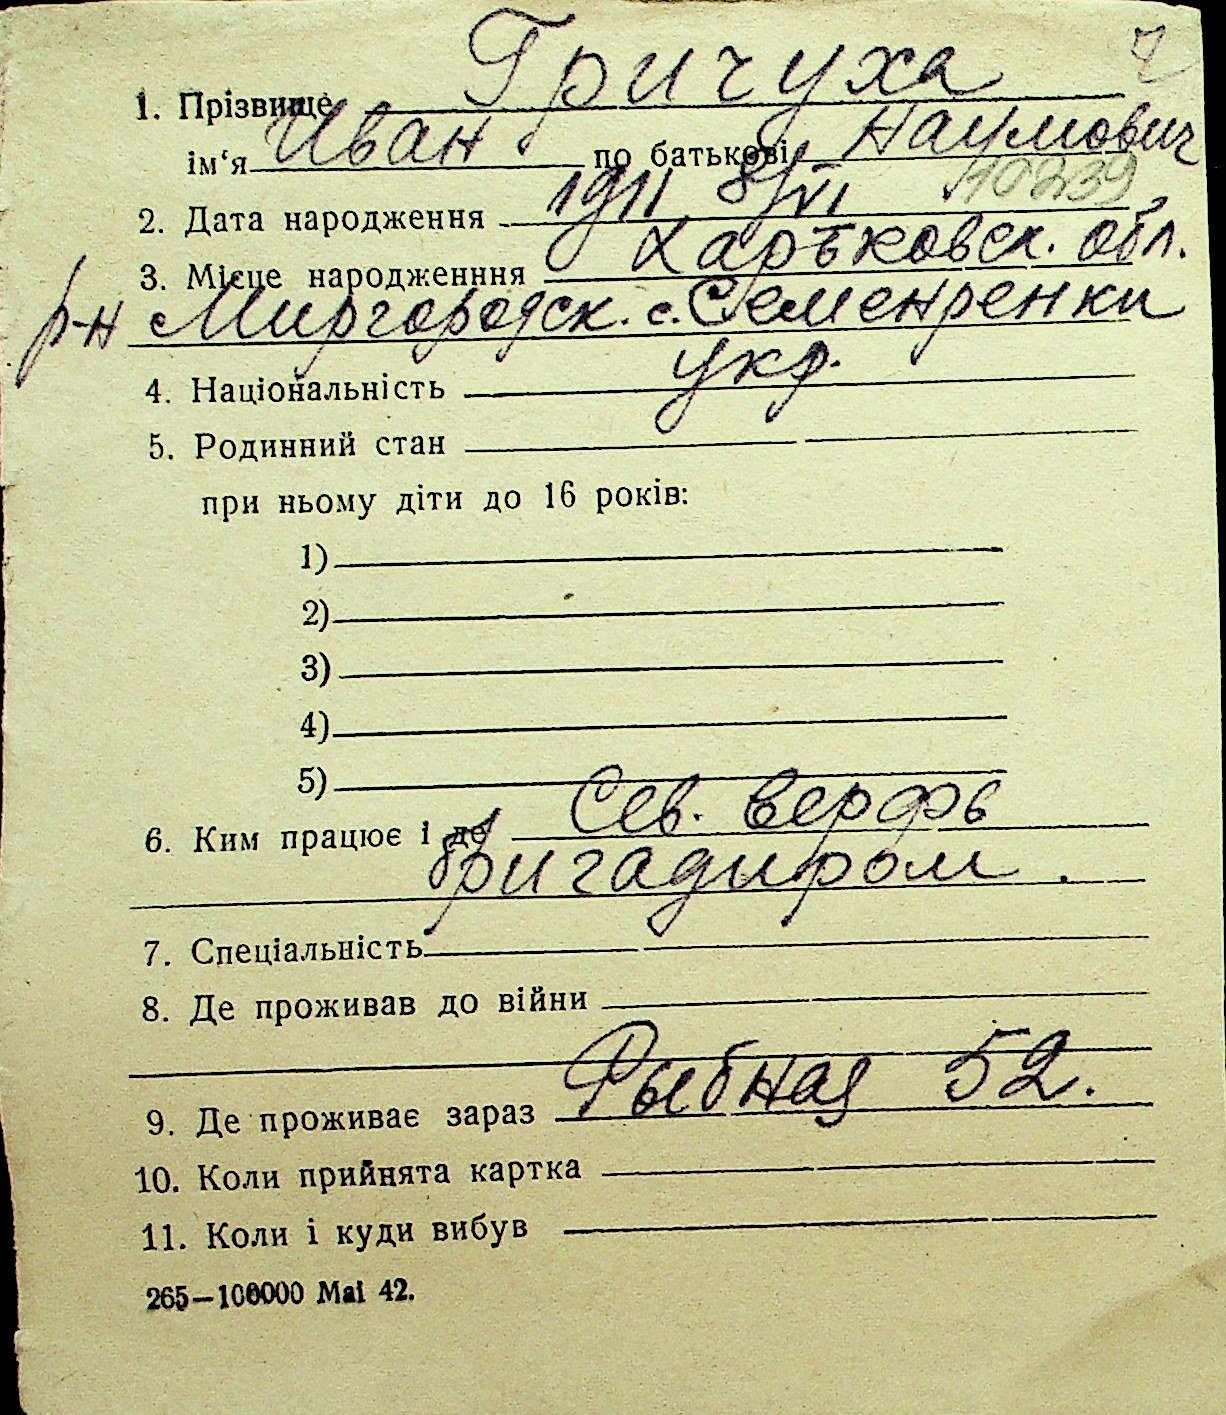 1. Прізвище Гричуха
ім‘я Иван по батькові Наумович
10239
2. Дата народження 1911 8/VI
3. Місце народженння Харьковск. обл.
р-н Миргородск. с. Семенренки
4. Національність укр.
5. Родинний стан
при ньому діти до 16 років:
1)
2)
3)
4)
5)
6. Ким працює і де Сев. верфь
бригадиром.
7. Спеціальність
8. Де проживав до війни
9. Де проживає зараз Рыбная 52.
10. Коли прийнята картка
11. Коли і куди вибув
265—100000 Mai 42.